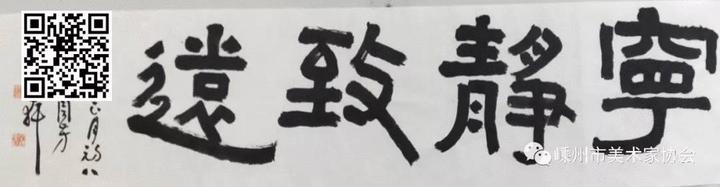 寧靜致遠
嵊州市美术家协会